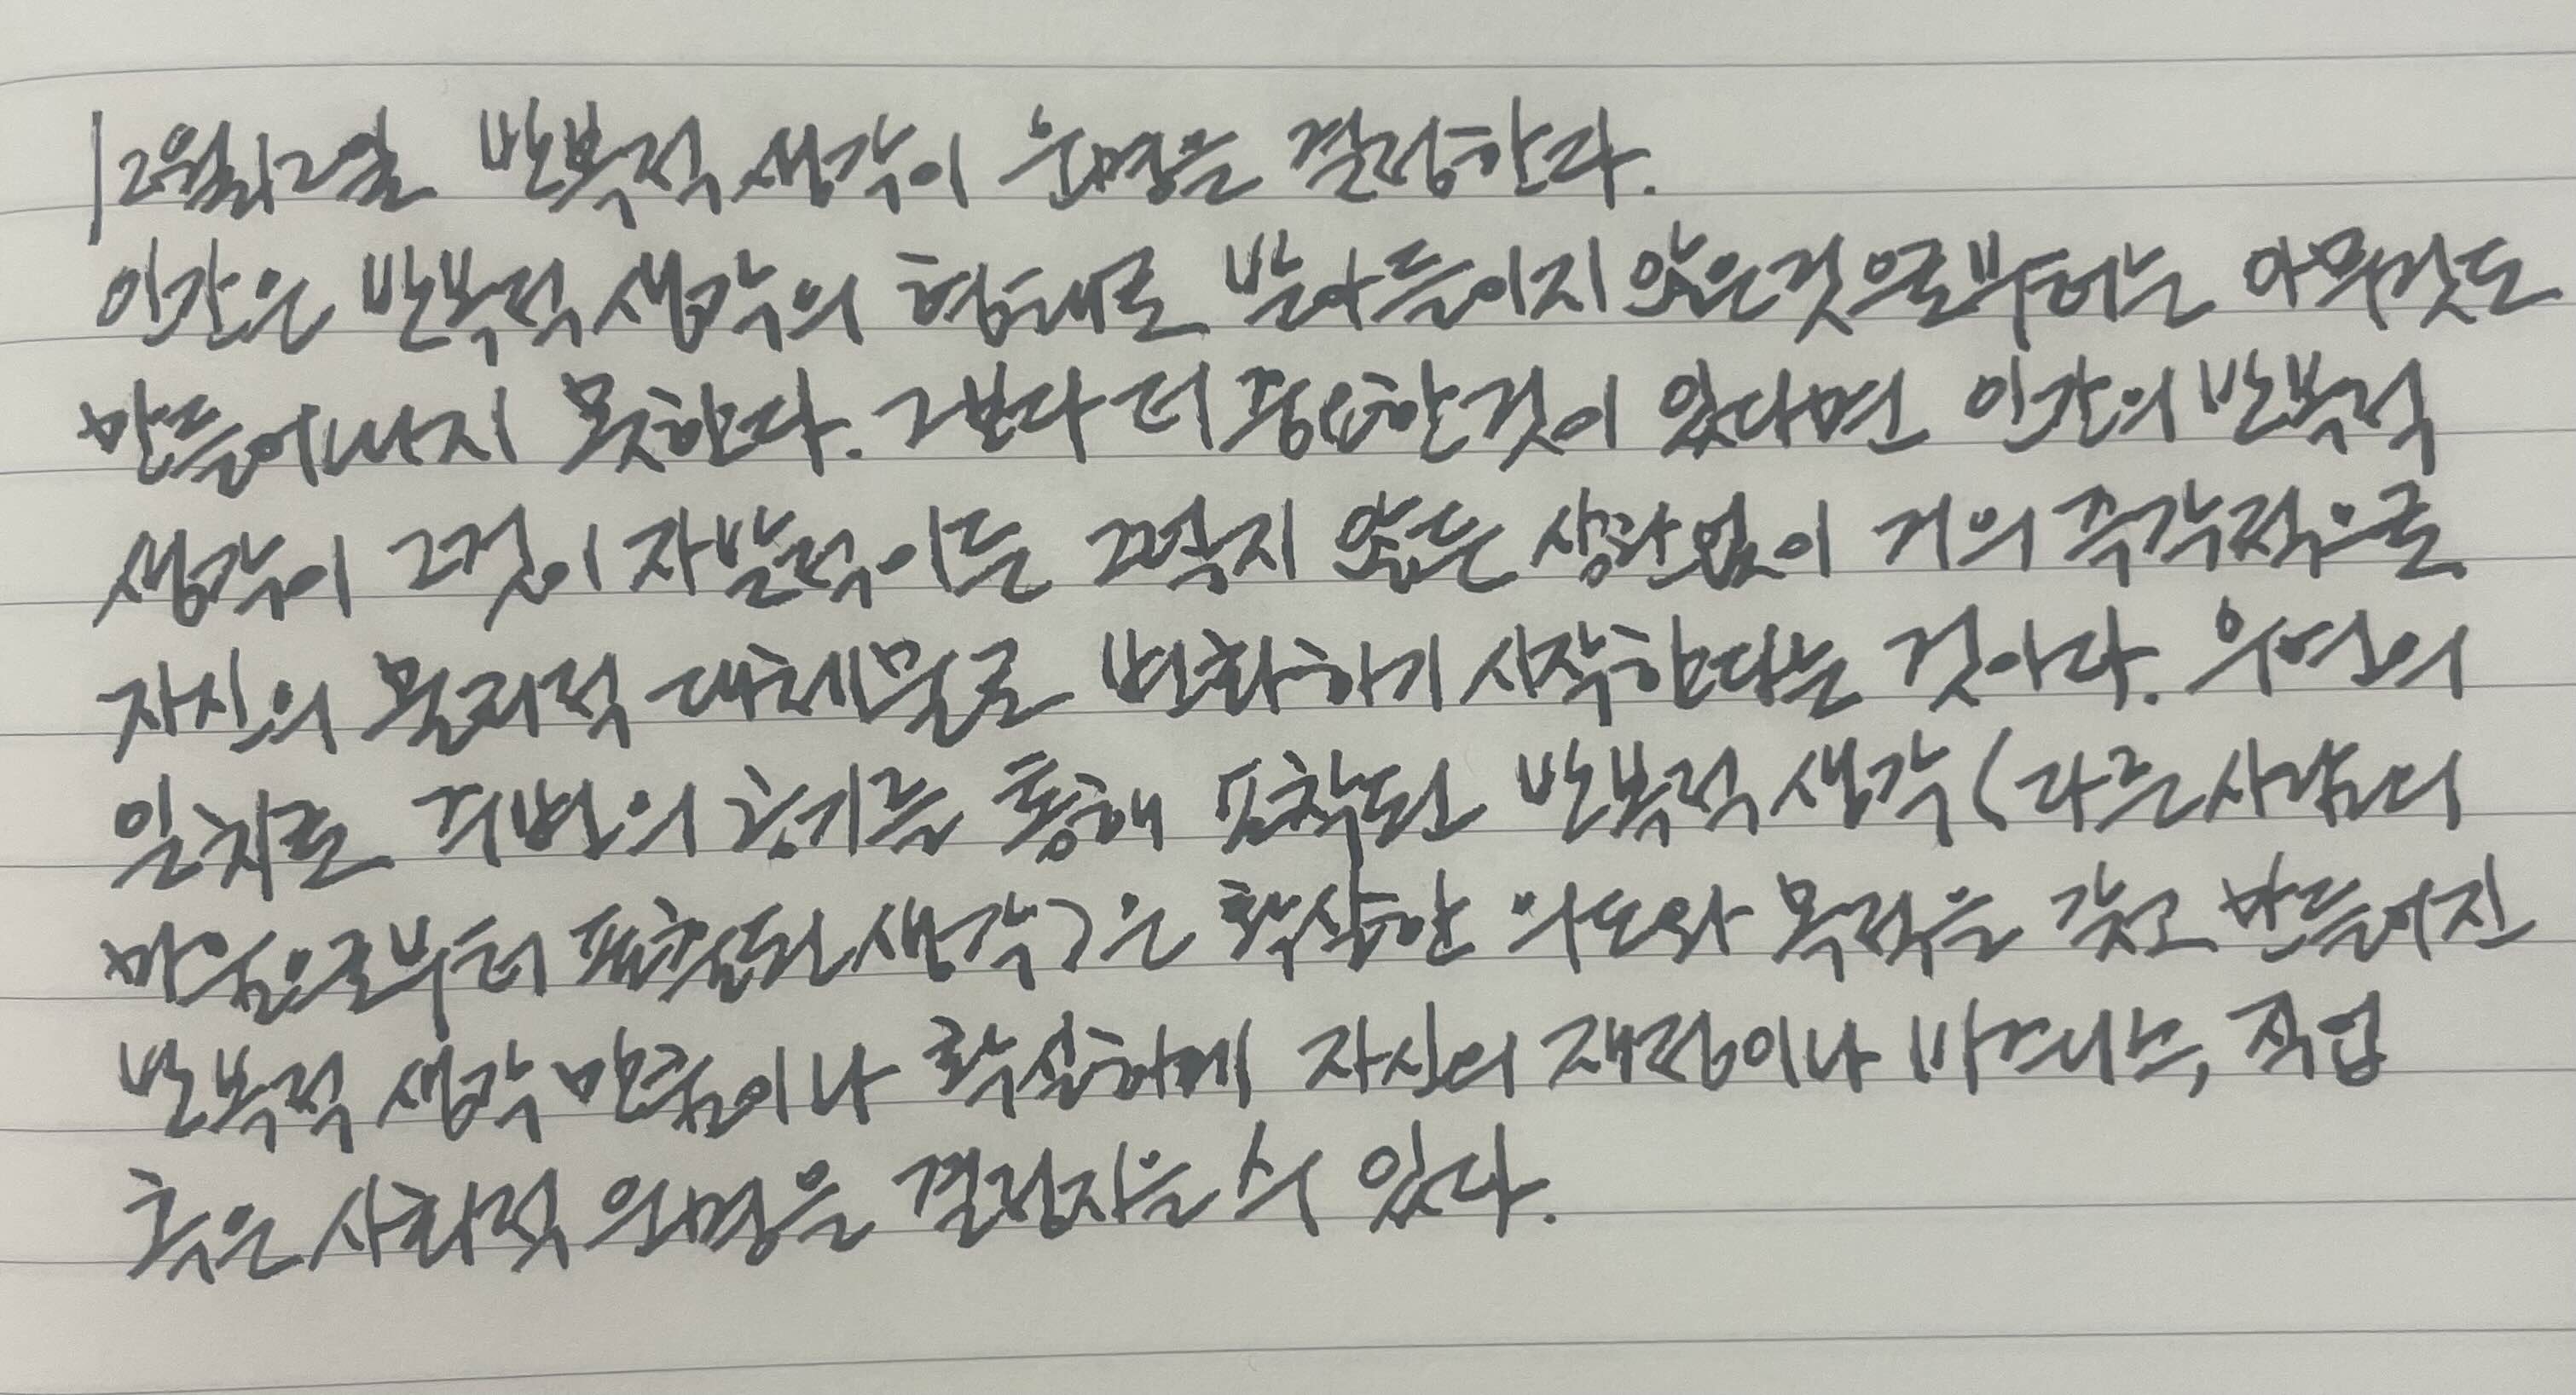 12월12일 반복적 생각이 운명을 결정한다.
인간은 반복적 생각의 형태로 받아들이지 않은것으로부터는 아무것도
만들어내지 못한다. 그보다 더 중요한것이 있다면 인간의 반복적
생각이 그것이 자발적이든 그렇지 않든 상관없이 거의 즉각적으로
자신의 물리적 대체물로 변화하기 시작한다는 것이다. 우연의
일치로 주변의 공기를 통해 포착된 반복적 생각(다른사람의
마음으로부터 표출된 생각)은 확실한 의도와 목적을 갖고 만들어진
반복적 생각 만큼이나 확실하게 자신의 재정이나 비즈니스, 직업
혹은 사회적 운명을 결정지을 수 있다.